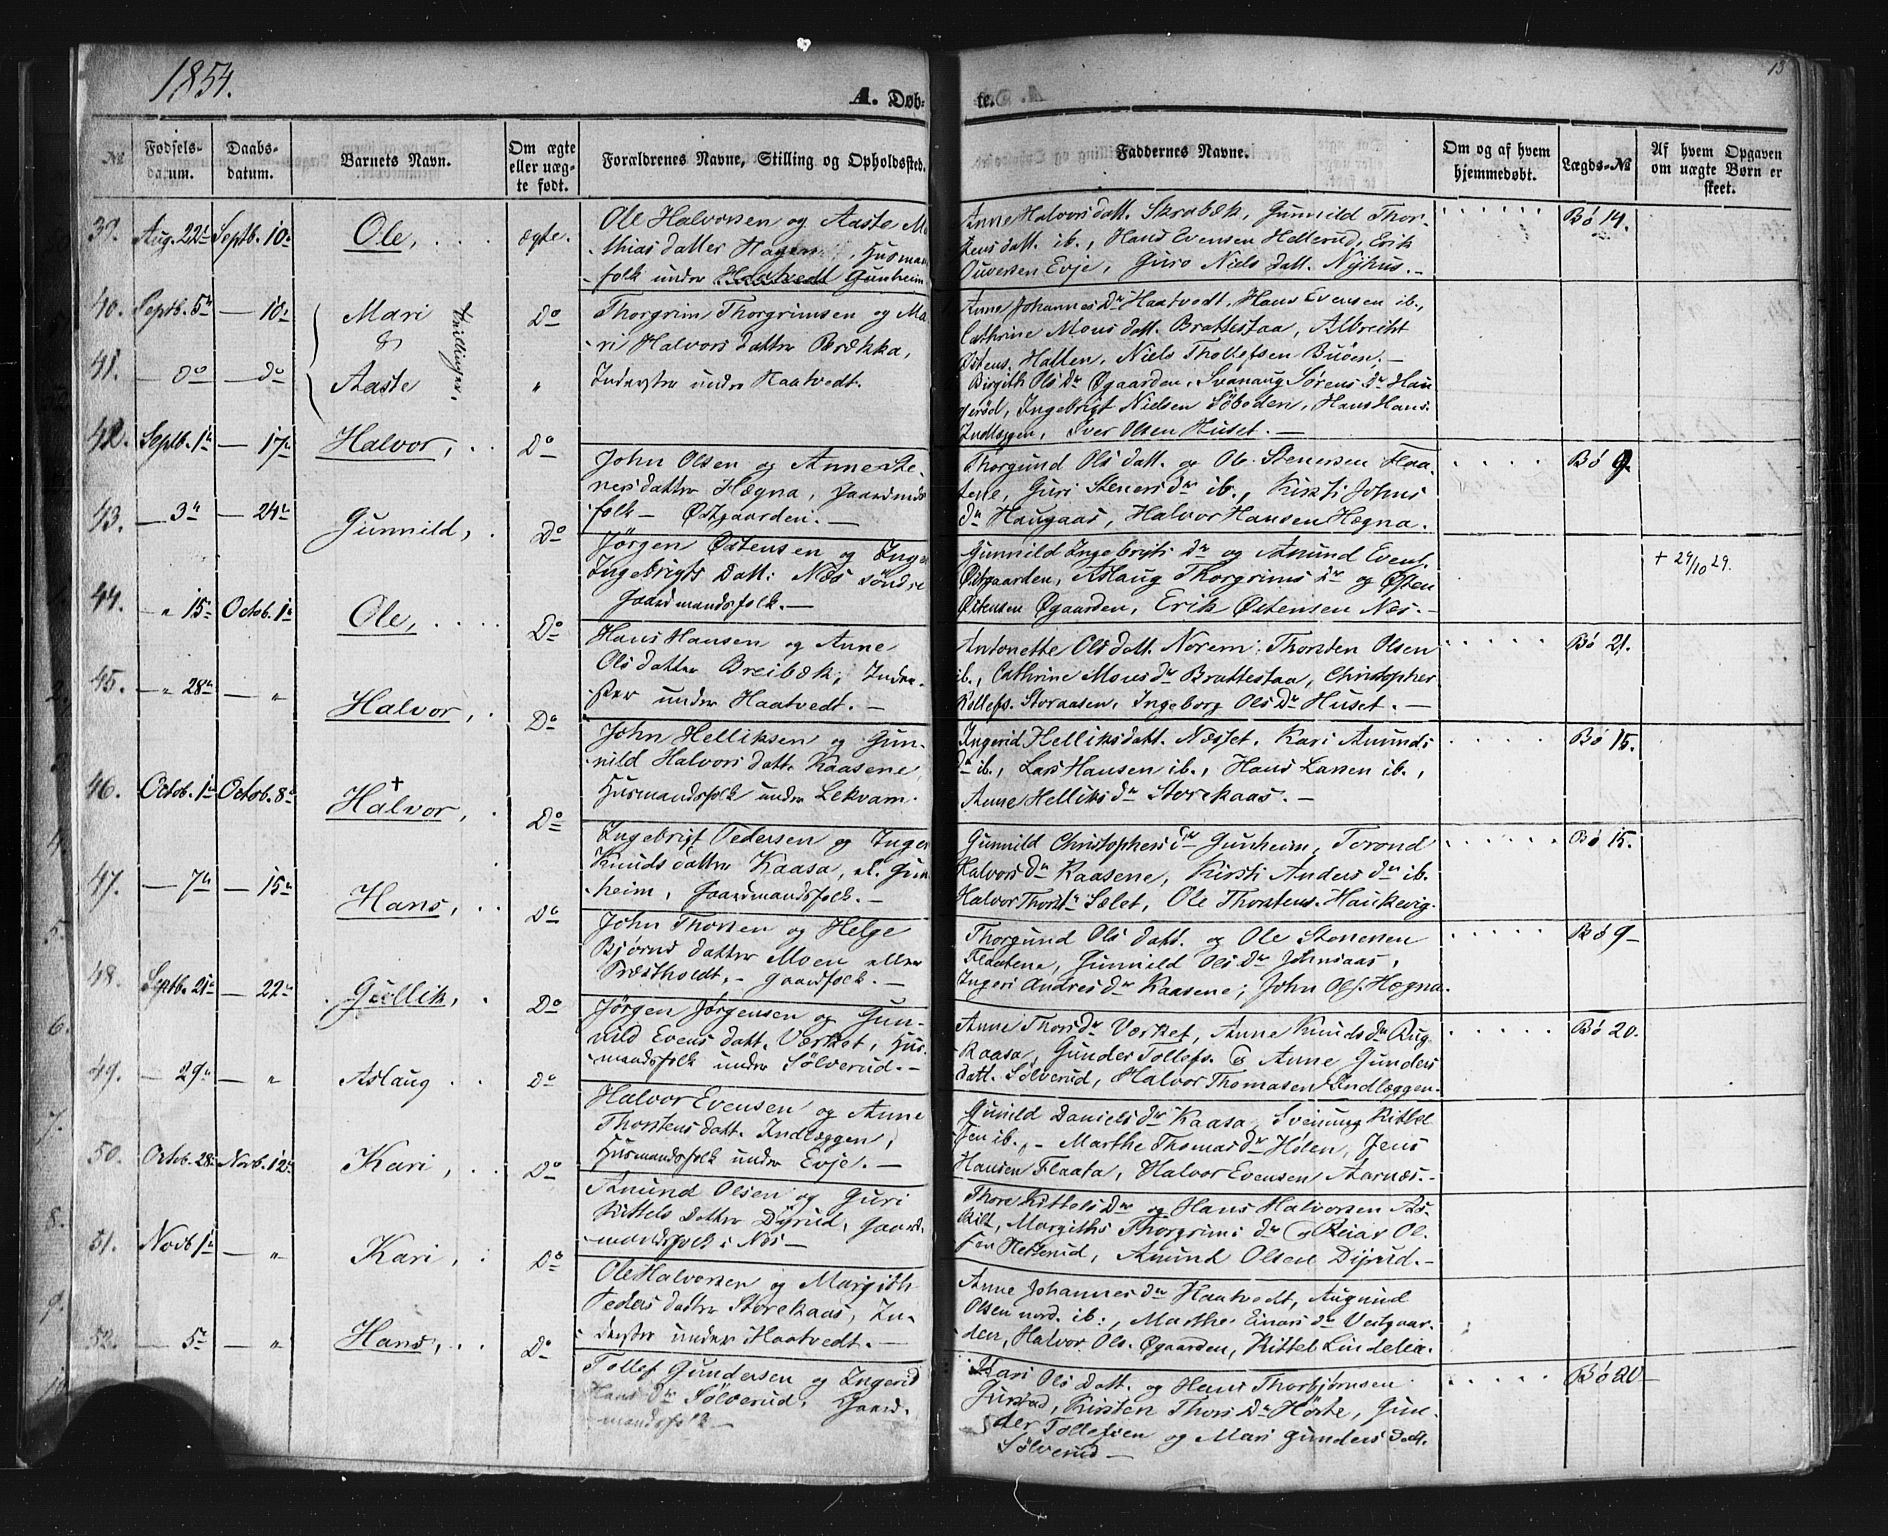 1854.
A. Døb-
te.
13
№
Fødsels-
datum.
Daabs-
datum.
Barnets Navn.
Om ægte
eller uæg-
te født.
Forældrenes Navne, Stilling og Opholdssted.
Faddernes Navne.
Om og af hvem
hjemmedøbt.
Lægds-№
Af hvem Opgaven
om uægte Børn er
skeet.
39. Aug. 22de Septb. 10de Ole, ægte.
Ole Halvorsen og Aaste Ma-
thiasdatter Hagen, Husmands-
folk under Haatvedt Gunheim
Anne Halvorsdatt. Skrabæk, Gunnild Thor-
stensdatt. ib., Hans Evensen Hellerud, Erik
Ouversen Evje, Guro Nielsdatt. Nyhus.-
Bø 14.
40. Septb. 5te — 10de Mari Do
&
tvillinger.
41. — do — do Aaste "
Thorgrim Thorgrimsen og Ma-
ri Halvorsdatter Brækka,
Inderster under Haatvedt.
Anne Johannesdr Haatvedt, Hans Evensen ib.,
Cathrine Monsdatt. Brattestaa, Albrecht
Østens. Halten, Niels Thollefsen Buøen,-
Birgith Olsdr Øgaarden, Svanaug Sørensdr Hau-
gerød, Ingebrigt Nielsen Søboden, Hans Hans.
Indlæggen, Sver Olsen Huset.-
42. Septb. 1te — 17de Halvor, Do
John Olsen og Anne Ste-
nersdatter Hægna, Gaardmands-
folk - Østgaarden.-
Thorgund Olsdatt. og Ole Stenersen Flaa-
tene, Guri Stenersdr ib., Kirsti Johns
dr Haugaas, Halvor Hansen Hægna.
Bø 9.
43. — 3de — 24de Gunnild, Do
Jørgen Østensen og Inge
Ingebrigts Datt: Næs Søndre
Gaardmandsfolk.-
Gunnild Ingebrigtsdr og Amund Evens.
Østgaarden, Aslaug Thorgrimsdr og Østen
Østensen Øgaarden, Erik Østensen Næs.-
+ 29/10 29.
44. — " 15de Octob. 1te Ole, Do
Hans Hansen og Anne
Olsdatter Breibæk, Inder-
ster under Haatvedt.-
Antonette Olsdatt. Norem, Thorsten Olsen
ib., Cathrine Monsdr Brattestaa, Christopher
Tollefs. Storaasen, Ingeborg Olsdr Huset.-
Bø 21.
45. — " 28de — " Halvor, Do
John Helliksen og Gun-
nild Halvorsdatter Kaasene,
Husmandsfolk under Lekvam.
Ingerid Helliksdatt. Næsset, Kari Amunds
dr ib., Lars Hansen ib., Hans Larsen ib.,
Anne Helliksdr Storekaas.-
Bø 15.
46. Octob. 1te Octob. 8de +
Halvor, Do
Ingebrigt Pedersen og Inger
Knudsdatter Kaasa, el. Gun-
heim, Gaardmandsfolk.-
Gunnild Christophersdr Gunheim, Torond
Halvorsdr Kaasene, Kirsti Andersdr ib.
Halvor Thorst. Sælet, Ole Thorstens. Haukevig.
Bø 15.
47. — 7de — 15de Hans, Do
John Thorsen og Helge
Bjørnsdatter Moen eller
Præstholdt,- Gaardfolk.-
Thorgund Olsdatt. og Ole Stenersen
Flaatene, Gunnild Olsdr Johnsaas,
Ingeri Andresdr Kaasene; John Ols. Hægna.
Bø 9-
48. Septb. 21de — 22de Gullik, Do
Jørgen Jørgensen og Gun-
nild Evensdatt. Verket, Hus-
mandsfolk under Sølverud.-
Anne Thorsdr Værket, Anne Knudsdr Rug-
kaasa, Gunder Tollefs. & Anne Gunders
datt. Sølverud, Halvor Thomasen Indlæggen.
Bø 20.
49. — 29de — " Aslaug Do
Halvor Evensen og Anne
Thorstensdatt. Indlæggen,
Husmandsfolk under Evje.-
Gunild Danielsdr Kaasa, Sveinung Kittel
sen ib.,- Marthe Thomasdr Holen, Jens
Hansen Flaata, Halvor Evensen Aarnæs.-
50. Octob. 28de Novb. 12te Kari, Do
Amund Olsen og Guri
Kittelsdatter Dyrud, Gaard-
mandsfolk i Næs-
Thore Kittelsdr og Hans Halvorsen As-
kilt, Margithe Thorgrimsdr og Reiar Ol-
sen Hellerud, Amund Olsen Dyrud.-
51. Novb 1te — " Kari, Do
Ole Halvorsen og Margith
Pedersdatter Storekaas, In-
derster under Haatvedt.-
Anne Johannesdr Haatvedt, Augund
Olsen nord. ib:, Marthe Einarsdr Vestgaar-
den, Halvor Ols. Øgaarden, Kittel Lindelia.
52. — 5te — " Hans, Do
Tollef Gundersen og Ingerid
Hansdr Sølverud, Gaard-
mandsfolk-
Mari Olsdatt. og Hans Thorbjørnsen
Gurstad, Kirsten Thorsdr Hørte, Gun-
der Tollefsen og Mari Gundersdatt.
Sølverud-
Bø 20-